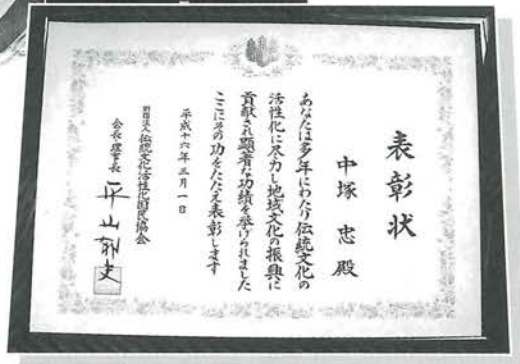 表彰状
中塚 忠 殿
あなたは多年にわたり伝統文化の
活性化に尽力し地域文化の振興に
貢献され顕著な功績を挙げられました
ここにその功をたたえ表彰します
平成十六年三月一日
財団法人 伝統文化活性化国民協会
会長・理事長 平山郁夫